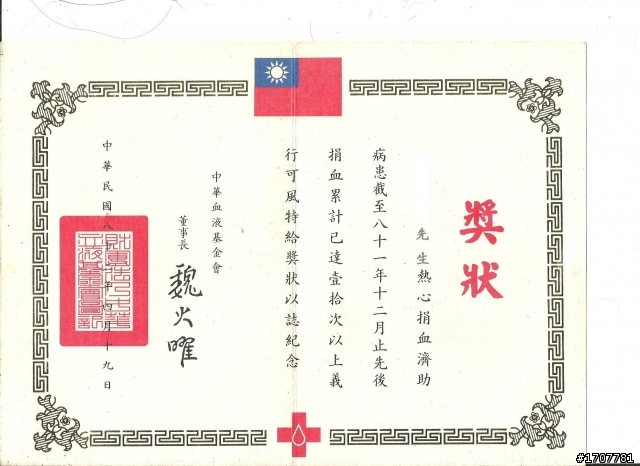 獎狀
先生熱心捐血濟助
病患截至八十一年十二月止先後
捐血累計已達壹拾次以上義
行可風特給獎狀以誌紀念
中華血液基金會
董事長 魏火曜
中華民國八年四月十九日
#1707781